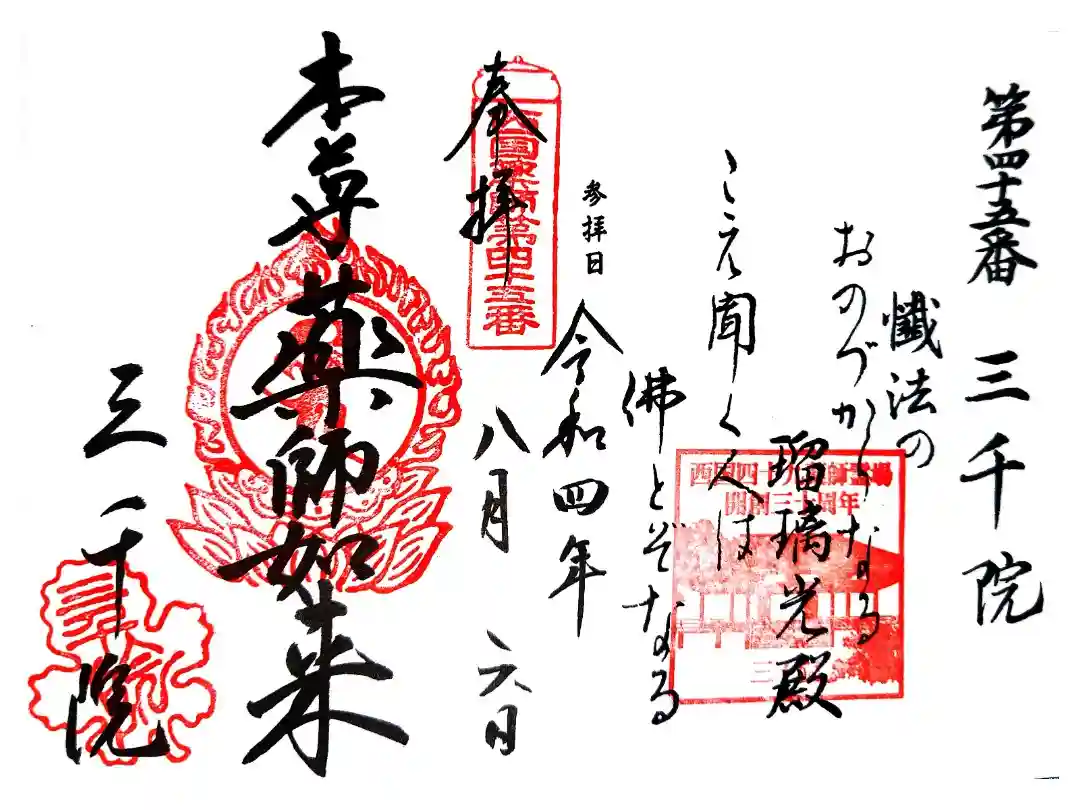 第四十五番 三千院
懺法の
おのづからなる
瑠璃光殿
こえ聞く人は
佛とぞなる
参拝日 令和四年
八月 六日
奉拝
西国薬師第四十五番
本尊薬師如来
三千院
西国四十九薬師霊場
開創三十周年